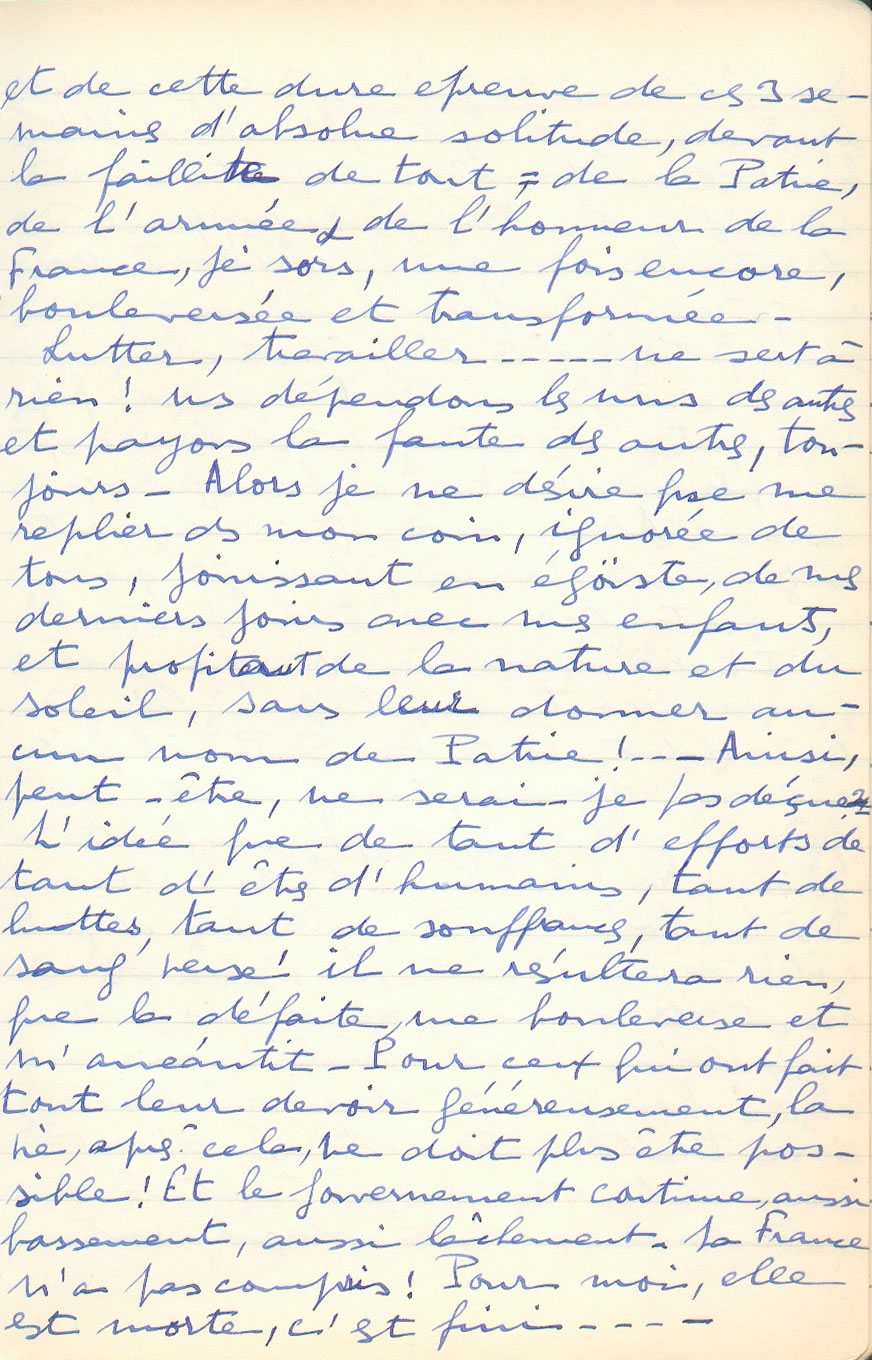 et de cette dure epreuve de ces 3 se-
maines d'absolue solitude, devant
la faillite de tout = de la Patrie,
de l'armée & de l'honneur de la
France, je sors, une fois encore,
bouleversée et transformée -
Lutter, travailler ----- ne sert à
rien ! ns dépendons les uns des autres
et payons la faute des autres, tou-
jours - Alors je ne désire que me
replier ds mon coin, ignorée de
tous, jouissant en égoïste, de mes
derniers jours avec mes enfants,
et profitant de la nature et du
soleil, sans leur donner au-
cun nom de Patrie ! --- Ainsi,
peut-être, ne serai-je pas déçue
L'idée que de tant d'efforts de
tant d'êtres d'humains, tant de
luttes, tant de souffrances, tant de
sang versé il ne résultera rien,
que la défaite, me bouleverse et
m'anéantit - Pour ceux qui ont fait
tout leur devoir généreusement, la
vie, après cela, ne doit plus être pos-
sible ! Et le gouvernement continue, aussi
bassement, aussi lâchement. La France
n'a pas compris ! Pour moi, elle
est morte, c'est fini ----